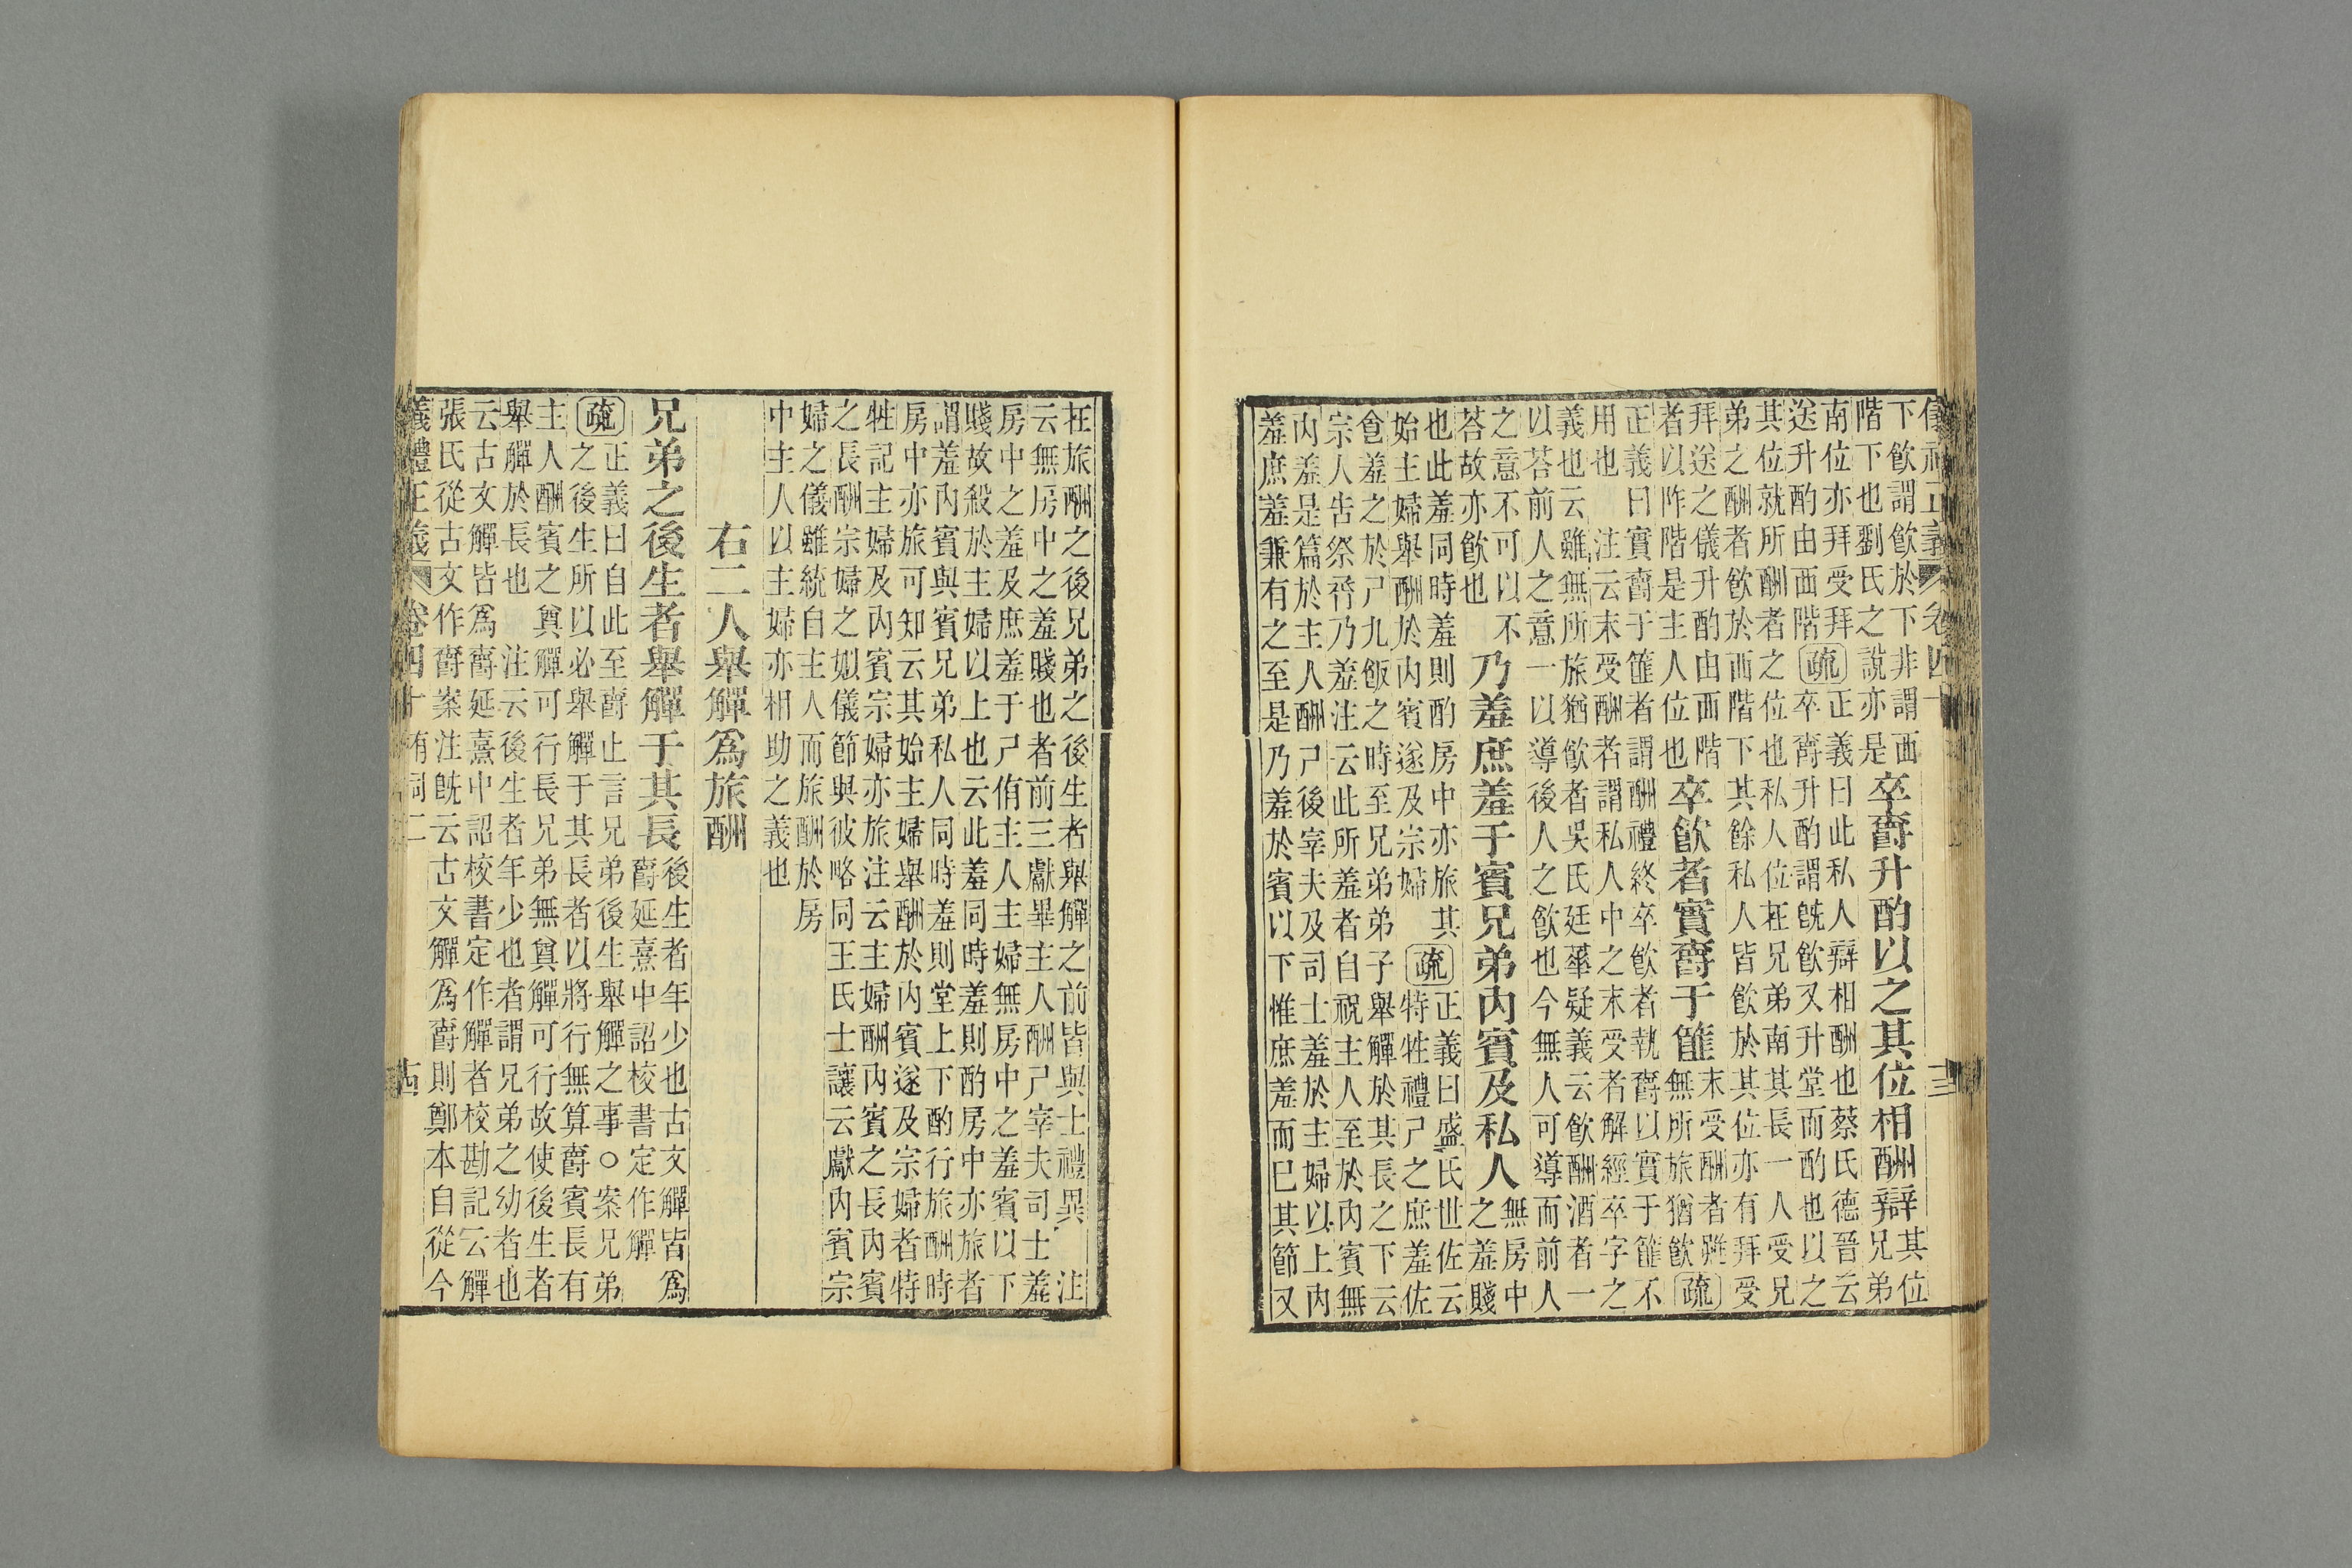 儀禮正義 卷四十 十三
下飲謂飲於下非謂西
階下也劉氏之說亦是
卒爵升酌以之其位相酬辯
其位
兄弟
南位亦拜受拜
送升酌由西階
疏
正義曰此私人辯相酬也蔡氏德晉云
卒爵升酌謂旣飲又升堂而酌也以之
其位就所酬者之位也私人位在兄弟南其長一人受兄
弟之酬者飲於西階下其餘私人皆飲於其位亦有拜受
拜送之儀升酌由西階
者以阼階是主人位也
卒飲者實爵于篚
末受酬者雖
無所旅猶飲
疏
正義曰實爵于篚者謂酬禮終卒飲者執爵以實于篚不
用也 注云末受酬者謂私人中之末受者解經卒字之
義也云雖無所旅猶飲者吳氏廷華疑義云飲酬酒者一
以荅前人之意一以導後人之飲也今無人可導而前人
之意不可以不
荅故亦飲也
乃羞庶羞于賓兄弟內賓及私人
無房中
之羞賤
也此羞同時羞則酌房中亦旅其
始主婦舉酬於內賓遂及宗婦
疏
正義曰盛氏世佐云
特牲禮尸之庶羞佐
食羞之於尸九飯之時至兄弟弟子舉觶於其長之下云
宗人告祭脀乃羞注云此所羞者自祝主人至於內賓無
內羞是篇於主人酬尸後宰夫及司士羞於主婦以上內
羞庶羞兼有之至是乃羞於賓以下惟庶羞而已其節又
在旅酬之後兄弟之後生者舉觶之前皆與士禮異 注
云無房中之羞賤也者前三獻畢主人酬尸宰夫司士羞
房中之羞及庶羞于尸侑主人主婦無房中之羞賓以下
賤故殺於主婦以上也云此羞同時羞則酌房中亦旅者
謂羞內賓與賓兄弟私人同時羞則堂上下酌行旅酬時
房中亦旅可知云其始主婦舉酬於內賓遂及宗婦者特
牲記主婦及內賓宗婦亦旅注云主婦酬內賓之長內賓
之長酬宗婦之姒儀節與彼略同王氏士讓云獻內賓宗
婦之儀雖統自主人而旅酬於房
中主人以主婦亦相助之義也
右二人舉觶爲旅酬
兄弟之後生者舉觶于其長
後生者年少也古文觶皆爲
爵延熹中詔校書定作觶
疏
正義曰自此至爵止言兄弟後生舉觶之事○案兄弟
之後生所以必舉觶于其長者以將行無算爵賓長有
主人酬賓之奠觶可行長兄弟無奠觶可行故使後生者
舉觶於長也 注云後生者年少也者謂兄弟之幼者也
云古文觶皆爲爵延熹中詔校書定作觶者校勘記云觶
張氏從古文作爵案注旣云古文觶爲爵則鄭本自從今
儀禮正義 卷四十 有司二 十四